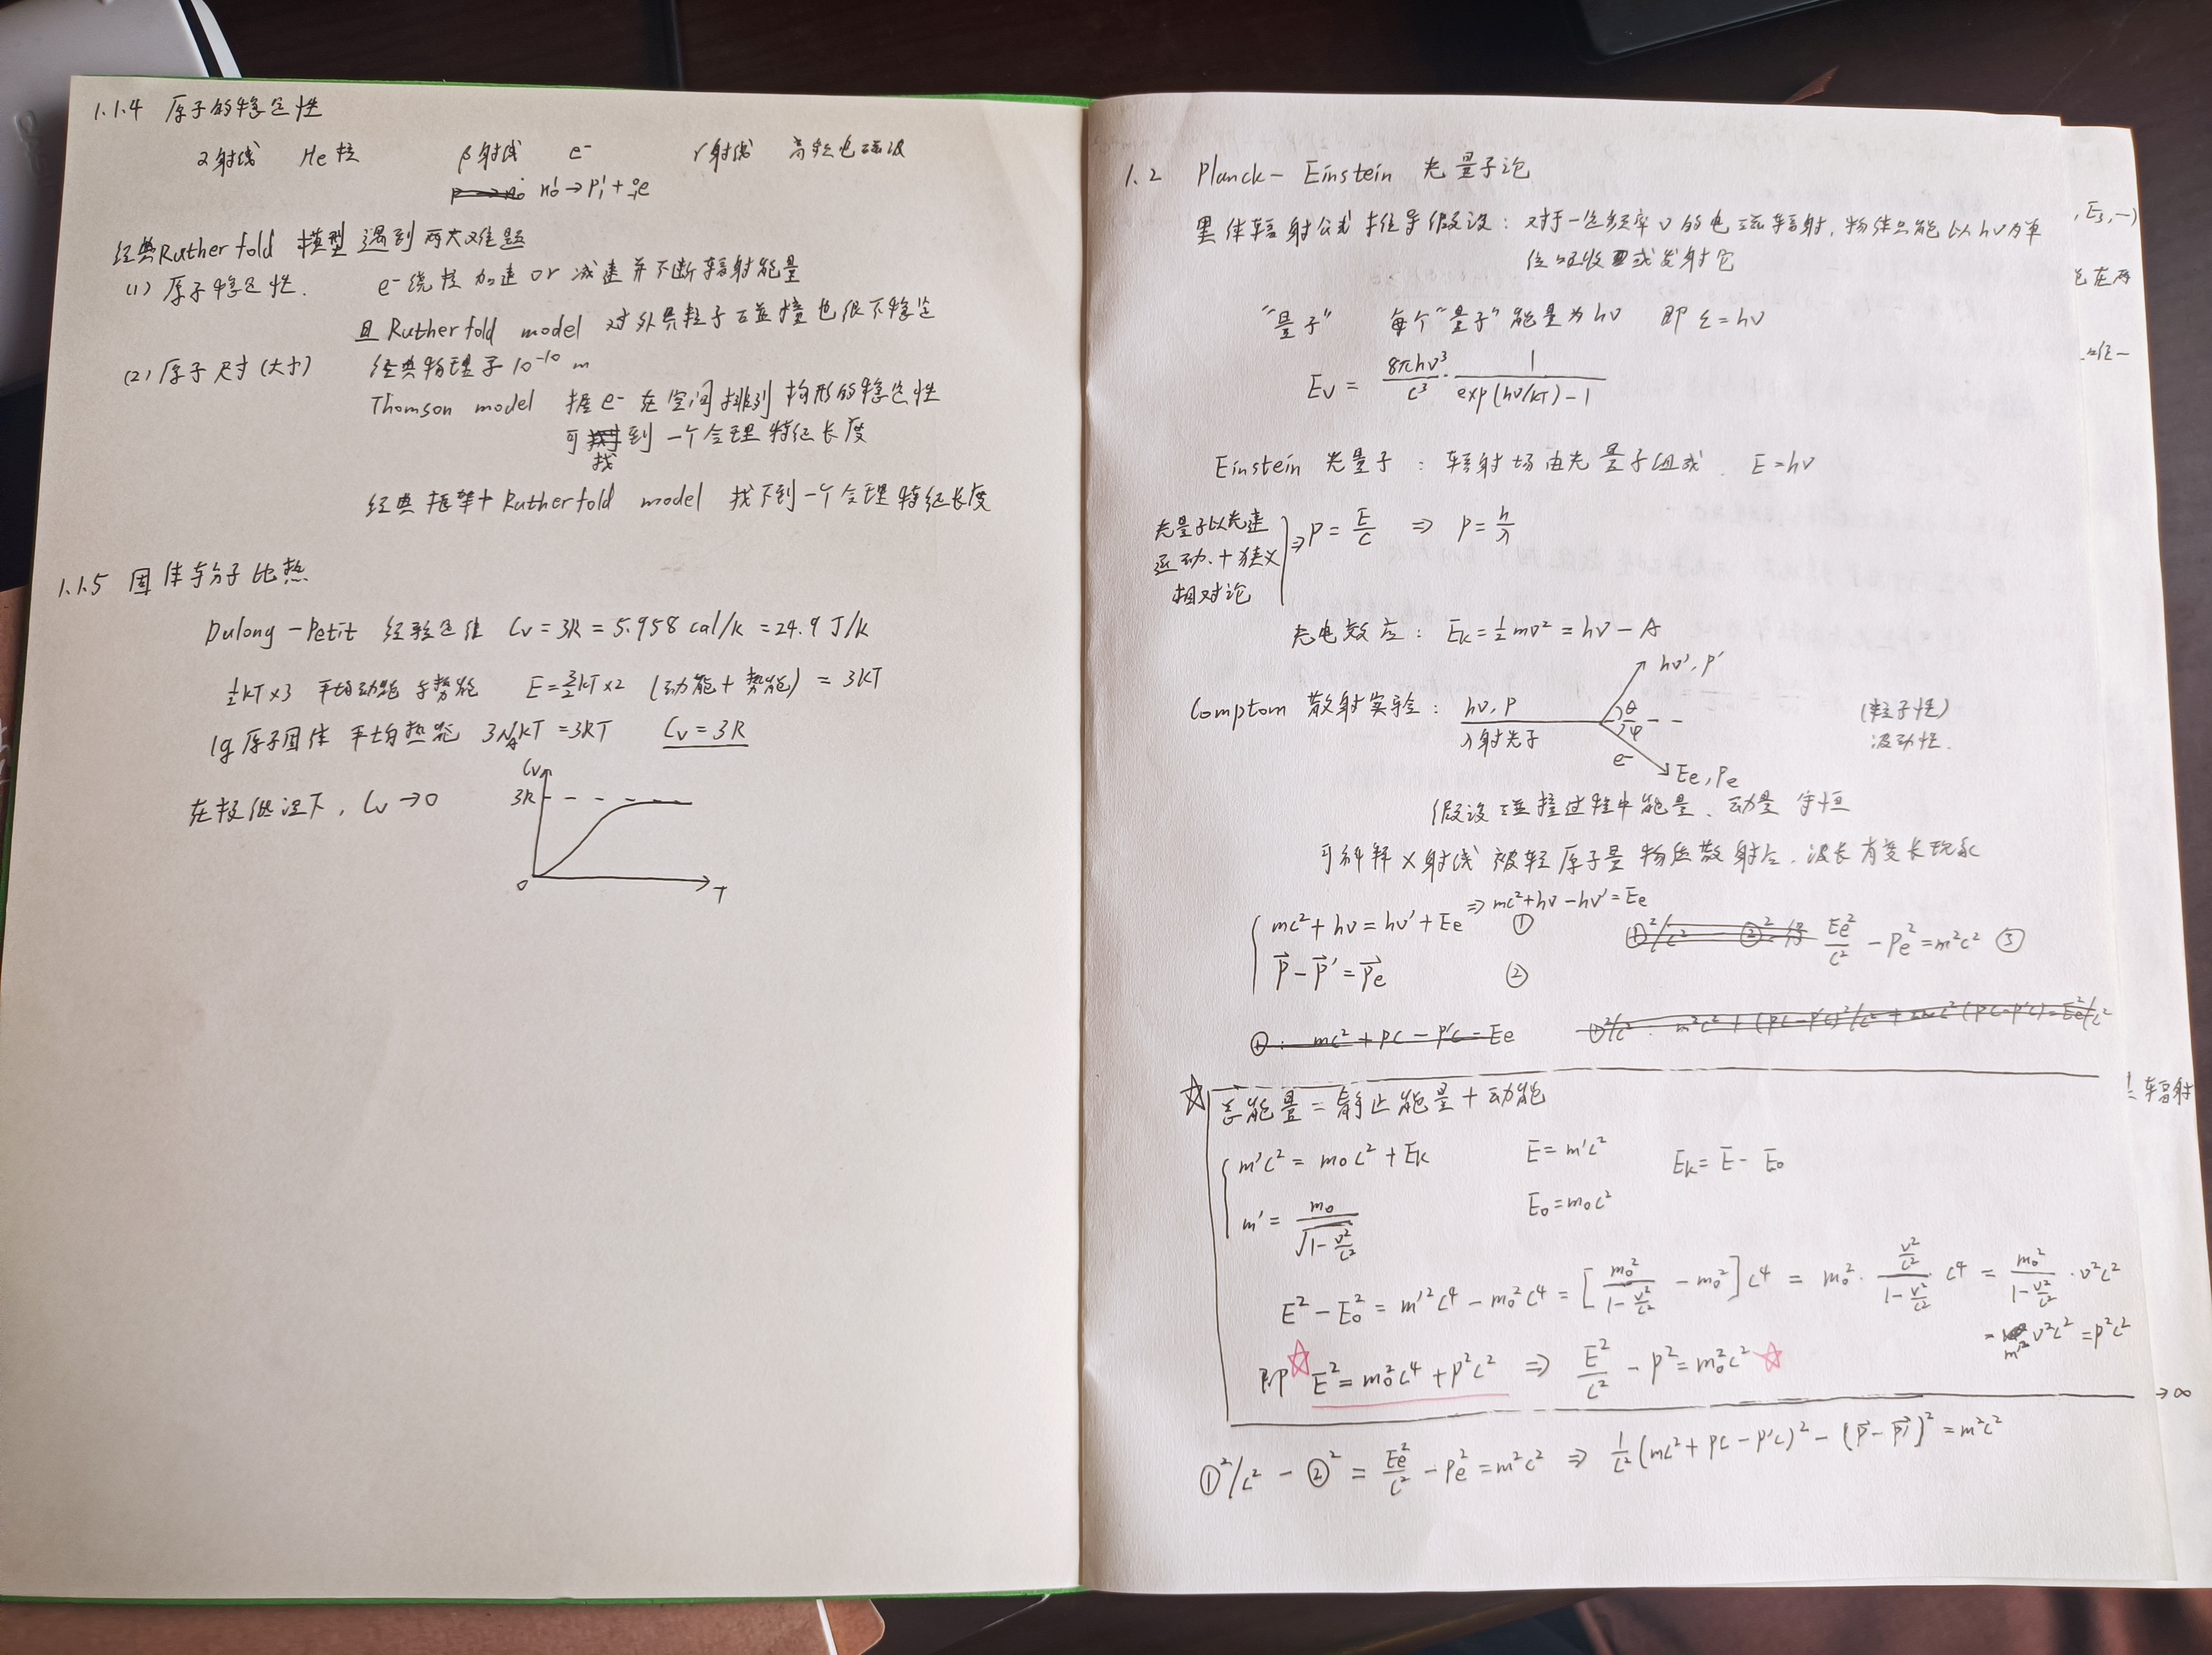 1.1.4 原子的稳定性
α射线 He核 β射线 e⁻ γ射线 高频电磁波
n₀¹→P₁¹+₋₁⁰e
经典Rutherfold 模型 遇到两大难题
(1) 原子稳定性. e⁻绕核加速 or 减速并不断辐射能量
且Rutherfold model 对外界粒子碰撞也很不稳定
(2) 原子尺寸(大小) 经典物理 10⁻¹⁰ m
Thomson model 据e⁻在空间排列构形的稳定性
可找到 一个合理特征长度
经典框架+Rutherfold model 找不到一个合理特征长度
1.1.5 固体与分子比热
Dulong-Petit 经验定律 Cv=3R=5.958 cal/K=24.9 J/K
½kT×3 平均动能与势能 E=3/2kT×2 (动能+势能) = 3kT
1g原子固体 平均热能 3N_A kT=3RT Cv=3R
在极低温下, Cv→0
Cv
3R
0
T
1.2 Planck-Einstein 光量子论
黑体辐射公式推导假设: 对于一定频率ν的电磁辐射, 物体只能以hν为单
位吸收或发射它
"量子" 每个"量子"能量为hν 即 ε=hν
Eν = 8πhν³/c³ · 1/(exp(hν/kT)-1)
Einstein 光量子: 辐射场由光量子组成. E=hν
光量子以光速
运动.+狭义
相对论
⇒ P=E/c ⇒ P=h/λ
光电效应: Ek=½mv²=hν-A
Comptom 散射实验: hν, P
入射光子
hν', P'
θ
φ
e⁻
Ee, Pe
(粒子性)
波动性.
假设碰撞过程中能量、动量守恒
可解释X射线被轻原子量物质散射后, 波长有变长现象
mc²+hν=hν'+Ee ⇒ mc²+hν-hν'=Ee ①
P⃗-P⃗'=P⃗e ②
①²/c² - ②²得 Ee²/c² - Pe²=m²c² ③
①: mc²+Pc-P'c=Ee
①²/c²: m²c²+(Pc-P'c)²/c²+2mc²(Pc-P'c)=Ee²/c²
☆ 总能量=静止能量+动能
m'c²=m₀c²+Ek E=m'c² Ek=E-E₀
m'=m₀/√(1-v²/c²) E₀=m₀c²
E²-E₀²=m'²c⁴-m₀²c⁴=[m₀²/(1-v²/c²) -m₀²]c⁴ = m₀²·(v²/c²)/(1-v²/c²)·c⁴ = m₀²/(1-v²/c²)·v²c²
=m'²v²c²=P²c²
即☆E²=m₀²c⁴+P²c² ⇒ E²/c² - P²=m₀²c²☆
①²/c² - ②² = Ee²/c² - Pe²=m²c² ⇒ 1/c²(mc²+Pc-P'c)²-(P⃗-P⃗')²=m²c²
, E₃, …)
在两
辐射
→∞